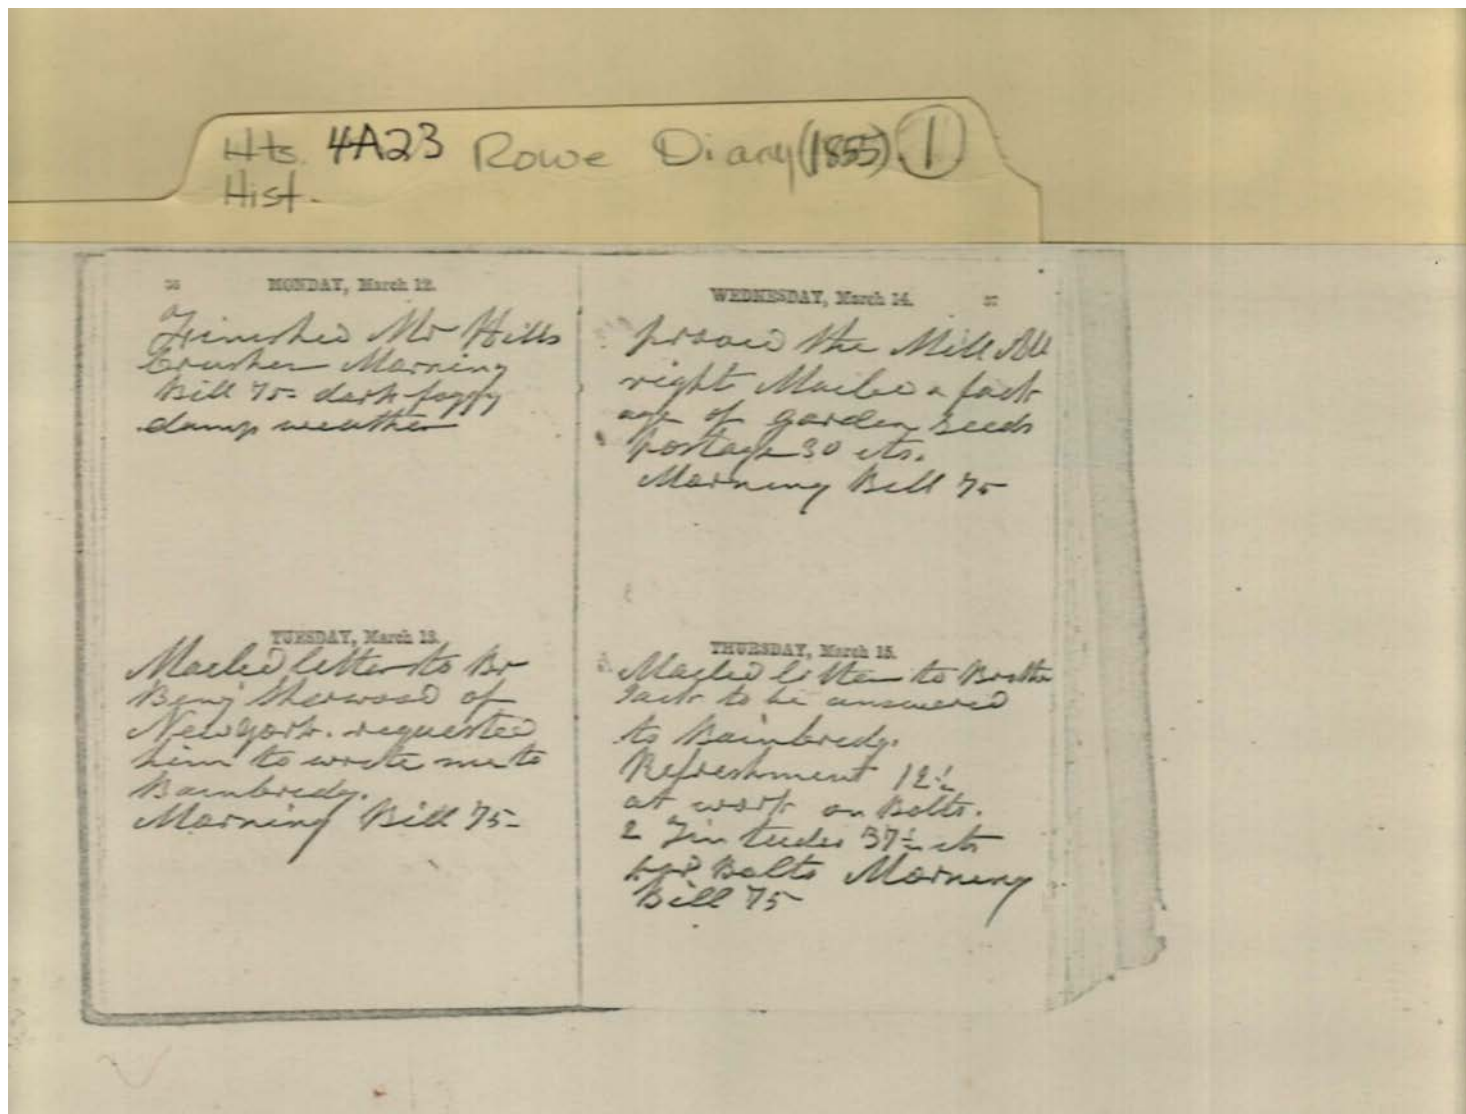 Hts. 4A23 Rowe Diary (1855) 1
Hist.
36 MONDAY, March 12.
Finished Mr Hills
Crusher Morning
Bill 75- dark foggy
damp weather
TUESDAY, March 13.
Maeled letter to Br
Benj Sherwood of
New york. requested
him to wrote me to
Bainbredg.
Morning Bill 75-
WEDNESDAY, March 14. 37
proved the Mill All
right Maeled a pack
age of garden Seeds
postage 30 cts.
Morning Bill 75
THURSDAY, March 15.
Maeled letter to Brother
Jack to be answered
to Bainbredg.
Refreshment 12½
at work on Bolts.
2 Tin tudes 37½ cts
for Bolts Morning
Bill 75